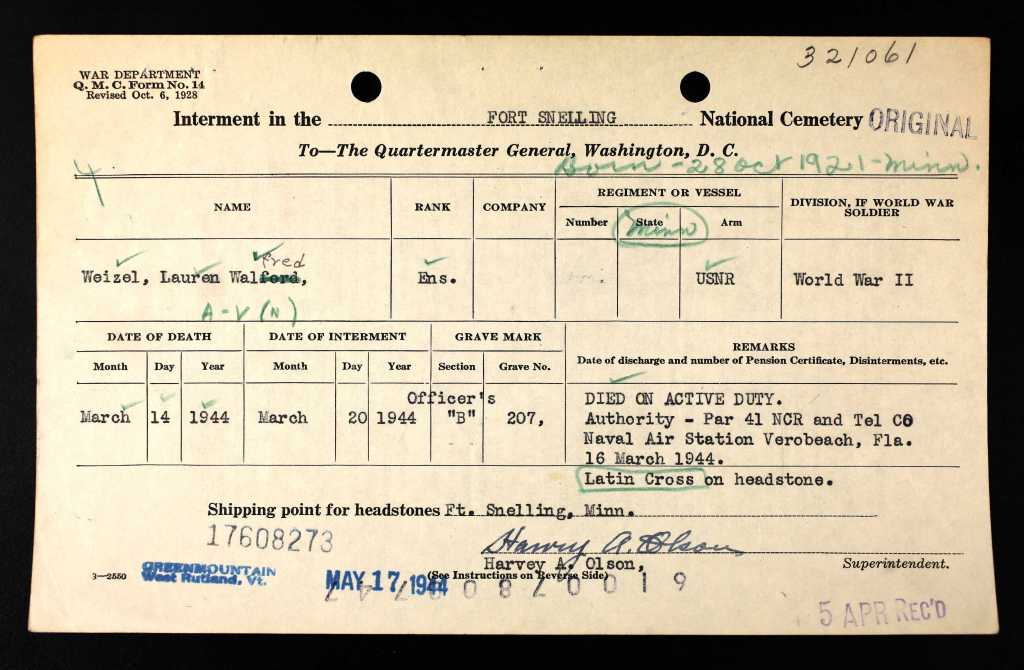 321061
WAR DEPARTMENT
Q. M. C. Form No. 14
Revised Oct. 6, 1928
Interment in the FORT SNELLING National Cemetery ORIGINAL
To—The Quartermaster General, Washington, D. C.
Born - 28 Oct 1921 - Minn.
4
NAME RANK COMPANY REGIMENT OR VESSEL DIVISION, IF WORLD WAR SOLDIER
Number State Arm
Minn
fred
Weizel, Lauren Walford, Ens. USNR World War II
A-V (N)
DATE OF DEATH DATE OF INTERMENT GRAVE MARK REMARKS
Date of discharge and number of Pension Certificate, Disinterments, etc.
Month Day Year Month Day Year Section Grave No.
Officer's DIED ON ACTIVE DUTY.
March 14 1944 March 20 1944 "B" 207, Authority - Par 41 NCR and Tel CO
Naval Air Station Verobeach, Fla.
16 March 1944.
Latin Cross on headstone.
Shipping point for headstones Ft. Snelling, Minn.
17608273
Harvey A. Olson
Harvey A. Olson, Superintendent.
GREENMOUNTAIN
West Rutland, Vt.
3—2550
MAY 17 1944
(See Instructions on Reverse Side)
5 APR REC'D